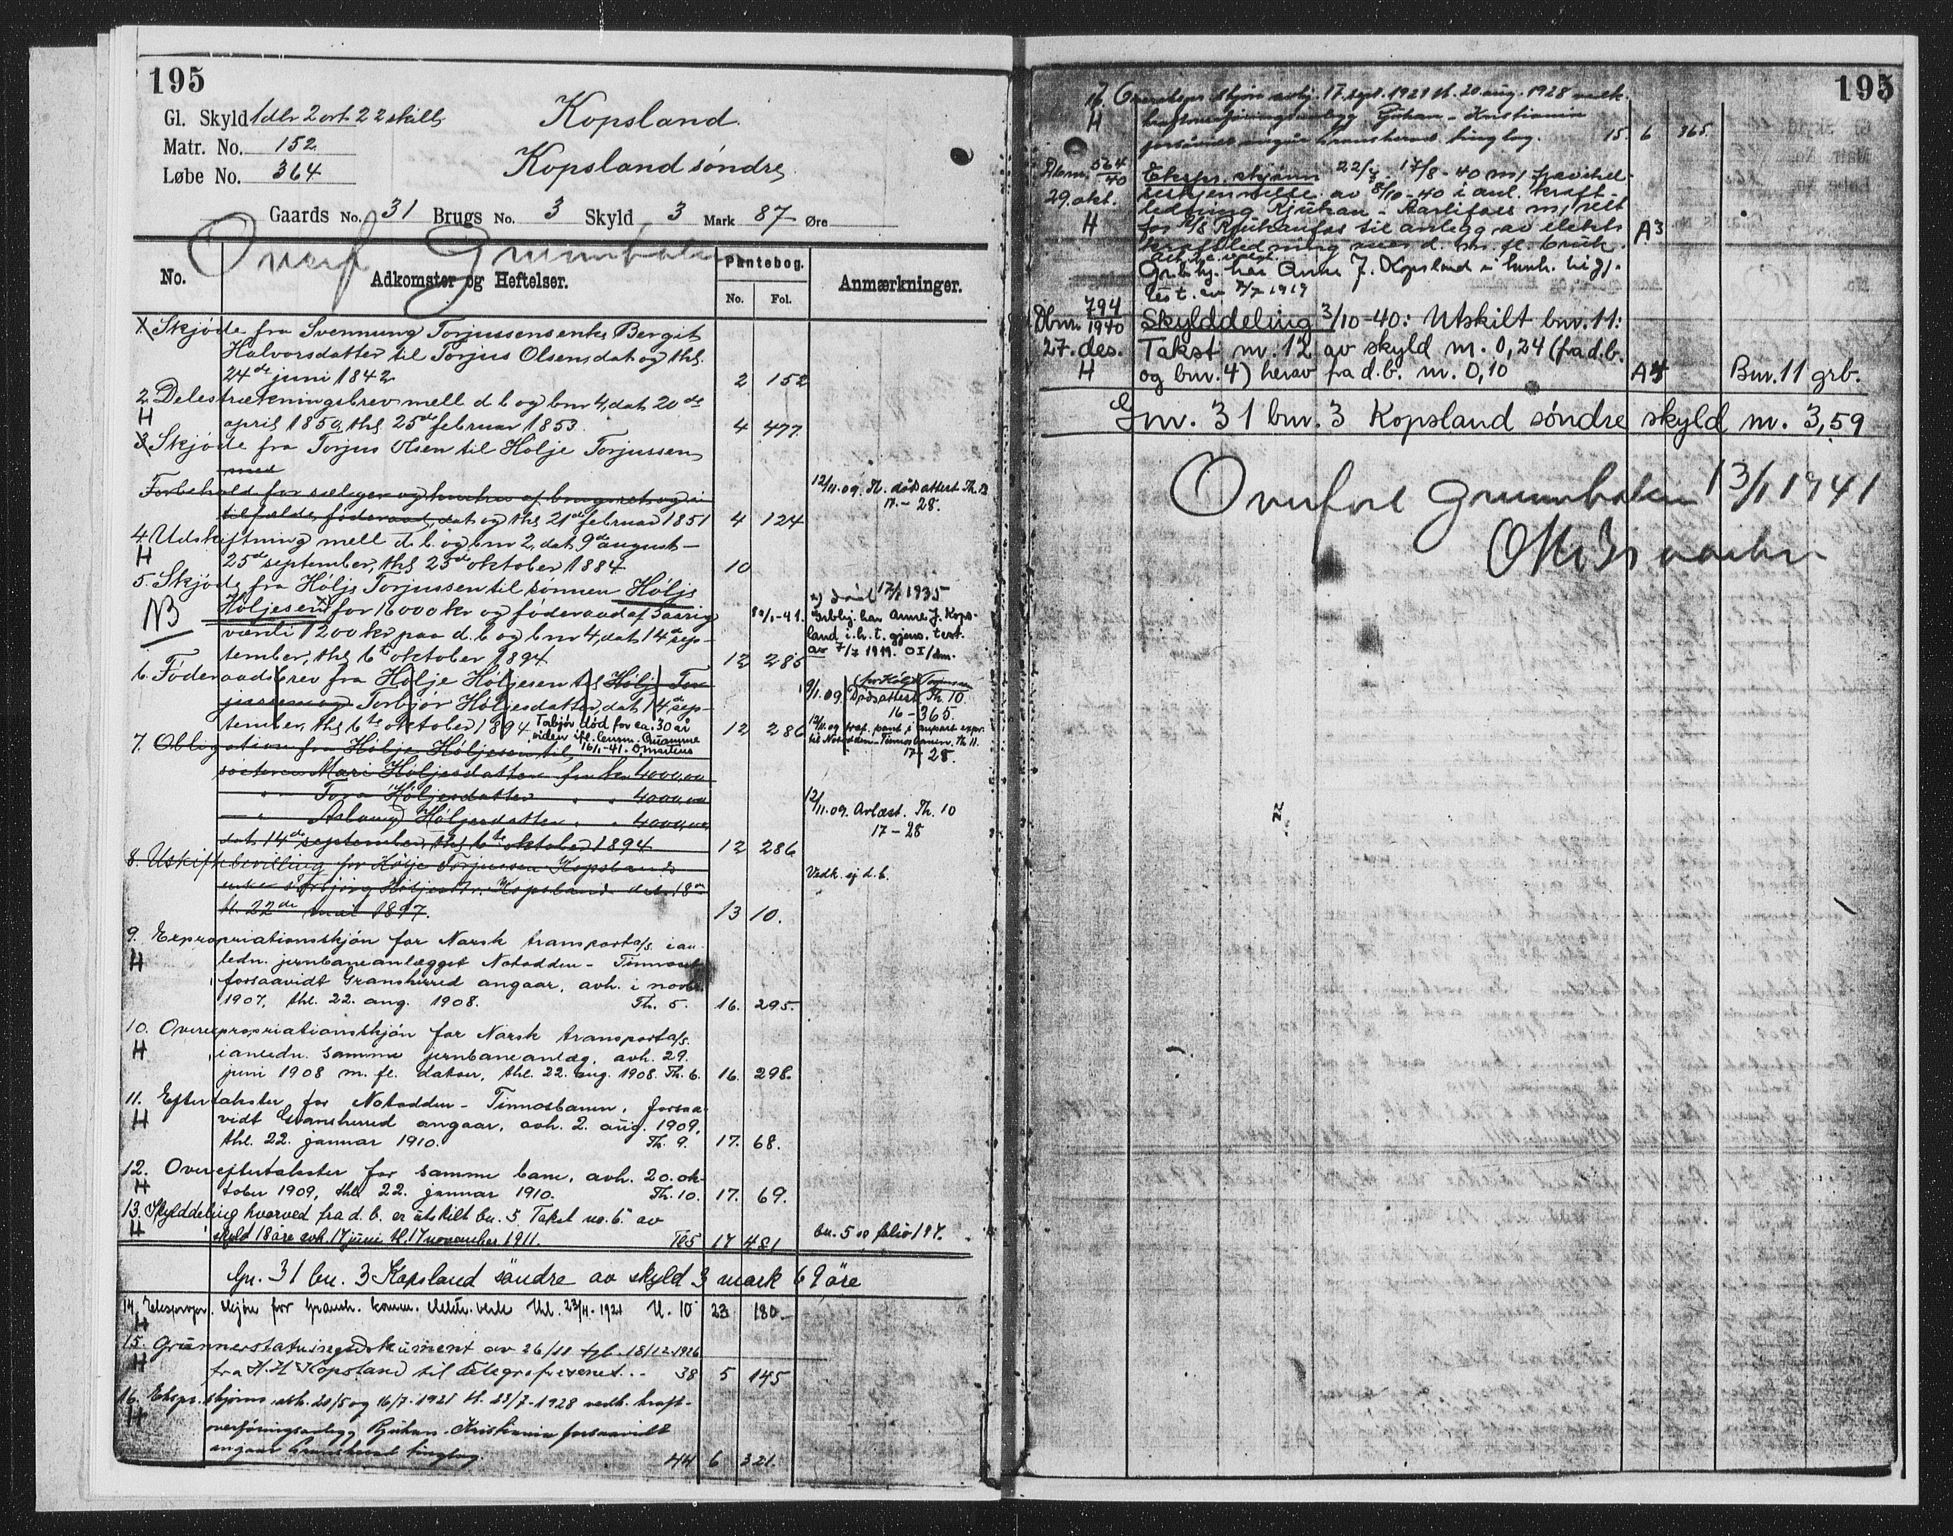 195
Gl. Skyld 1 dlr 2 ort 22 skill
Matr. No. 152
Løbe No. 364
Kopsland
Kopsland søndre
Gaards No. 31 Brugs No. 3 Skyld 3 Mark 87 Øre
Overf Grunnboken
No.
Adkomster og Heftelser.
Pantebog.
No. Fol.
Anmærkninger.
1. Skjøde fra Svennung Torjussens enke Bergit
Halvorsdatter til Torjus Olsen, dat og thl
24de juni 1842
2 152
2. Delestrækningsbrev mell d. b og bnr 4, dat 20de
H
april 1850, thl 25de februar 1853.
4 477
3. Skjøde fra Torjus Olsen til Holje Torjussen
med
Forbehold for sælger og hustru af brugsret og i
12/11.09. Th. dødsattest Th. 12
17 - 28.
tilfælde føderaad, dat og thl 21de februar 1851
4 124
4. Udskiftning mell d. b. og bnr 2, dat 9de august -
H
25de september, thl 23de oktober 1884
10
5. Skjøde fra Hølje Torjussen til sønnen Hølje
NB
Høljesen x) for 16000 kr og føderaad af 5 aarig
værdi 1200 kr paa d. b og bnr 4, dat 14de sep-
tember, thl 6te oktober 1894
12 285
x) død 17/1 1935
8/1-41. Grbhj. har Anne J. Kops-
land i.h.t. gjens. test.
av 7/7 1919. OI/am.
6. Føderaadsbrev fra Hølje Høljesen til Hølje Tor-
jussen og Torbjør Høljesdatter, dat 14de sep-
tember, thl 6te oktober 1894
Torbjør død for ca. 30 år
siden ifl. lensm. Qvamme
16/1-41.
12 286
9/1.09. Dødsattest Th. 10
for Hølje Torjussen
16 - 365
12/11.09 traf. pant i anpart expr.
til Notodden-Tinnosbanen. Th 11.
17 - 28.
7. Obligation fra Hølje Høljesen til
søsteren Mari Høljesdatter for kr 4000,00
" Tora Høljesdatter " " 4000,00
" Aslaug Høljesdatter " " 4000,00
dat 14de september, thl 6te oktober 1894
12 286
12/11.09. Avlæst. Th. 10
17 - 28
8. Uskiftebevilling for Hølje Torjussen Kopsland
efter Torbjørg Høljesdtr. Kopsland dat. 18de
tl. 22de mai 1897.
13 10.
Vedk. ej d. b.
9. Expropriationsskjøn for Norsk transporta/s. i an-
H
ledn. jernbaneanlægget Notodden - Tinnoset
forsaavidt Gransherred angaar, avh. i novbr.
1907, thl. 22. aug. 1908. Th. 5.
16. 295.
10. Overexpropriationsskjøn for Norsk transporta/s.
H
i anledn. samme jernbaneanlæg, avh. 29.
juni 1908 m. fl. datoer, thl. 22. aug. 1908. Th. 6.
16. 298.
11. Eftertakster for Notodden - Tinnosbanen, forsaa-
H
vidt Gransherred angaar, avh. 2. aug. 1909,
thl. 22. januar 1910. Th. 9.
17. 68.
12. Overeftertakster for samme bane, avh. 20. ok-
H
tober 1909, thl. 22. januar 1910. Th. 10.
17. 69.
13. Skylddeling hvorved fra d. b. er utskilt bn. 5 Takst no. 6 av
H
skyld 18 øre avh. 17 juni tl. 17 november 1911. Th 5
17 481
bn. 5 se folio 197.
Gn. 31 bn. 3 Kopsland søndre av skyld 3 mark 69 øre
14. Ekspropr. skjøn for Gransh. komm. elektr. verk thl. 23/4-1921 N. 10
H
23 180
15. Grunnerstatningsdokument av 26/11 tgl. 18/12-1926
H
fra H. H. Kopsland til telegrafvesenet.. 38
5 145
16. Ekspr. skjønn avh. 20/5 og 16/7-1921 tl. 23/7-1928 vedk. kraft-
H
overføringsanlegg Rjukan - Kristiania forsaavidt
angaar Gransherad tinglag. 44
6 321.
195
17. Overekspr. skjøn avhj. 17. sept. 1921 tl. 20 aug. 1928 vedk.
H
kraftoverføringsanlegg Rjukan - Kristiania
forsåvidt angår Gransherad tinglag. 15.
6 365.
Dbnr. 564/40
29. okt.
H
Ekspr. skjønn 22/4 - 17/8-40 m/ frevikel-
seskjennelse av 8/10-40 i anl. kraft-
ledning Rjukan - m/ rett
for A/S Rjukanfos til anlegg av elektr.
kraftledning over d. bn. fl. bruk.
A3
Grbhj. har Anne J. Kopsland i henh. til gj.
test. av 7/7 1919
Dbnr. 794/1940
27. des.
H
Skylddeling 3/10-40: Utskilt bnr. 11:
Takst nr. 12 av skyld m. 0,24 (fra d.b.
og bnr. 4) herav fra d.b. m. 0,10
Bnr. 11 grb.
Gnr. 31 bnr. 3 Kopsland søndre skyld m. 3,59
Overført grunnboken 13/1 1941